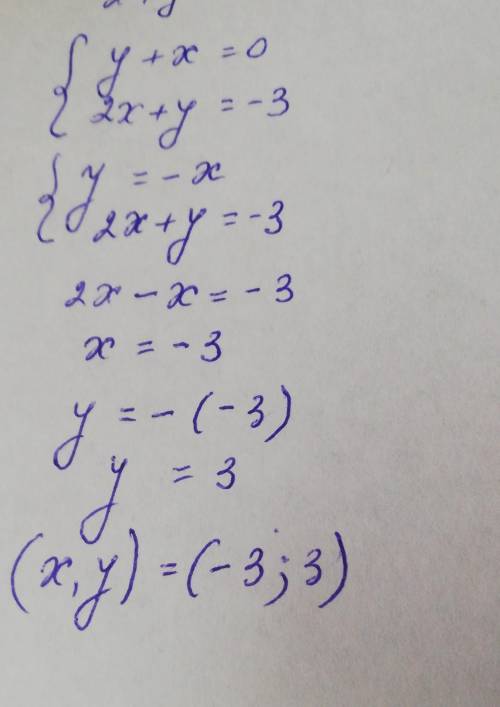 { y + x = 0
2x + y = -3
{ y = -x
2x + y = -3
2x - x = -3
x = -3
y = -(-3)
y = 3
(x, y) = (-3; 3)